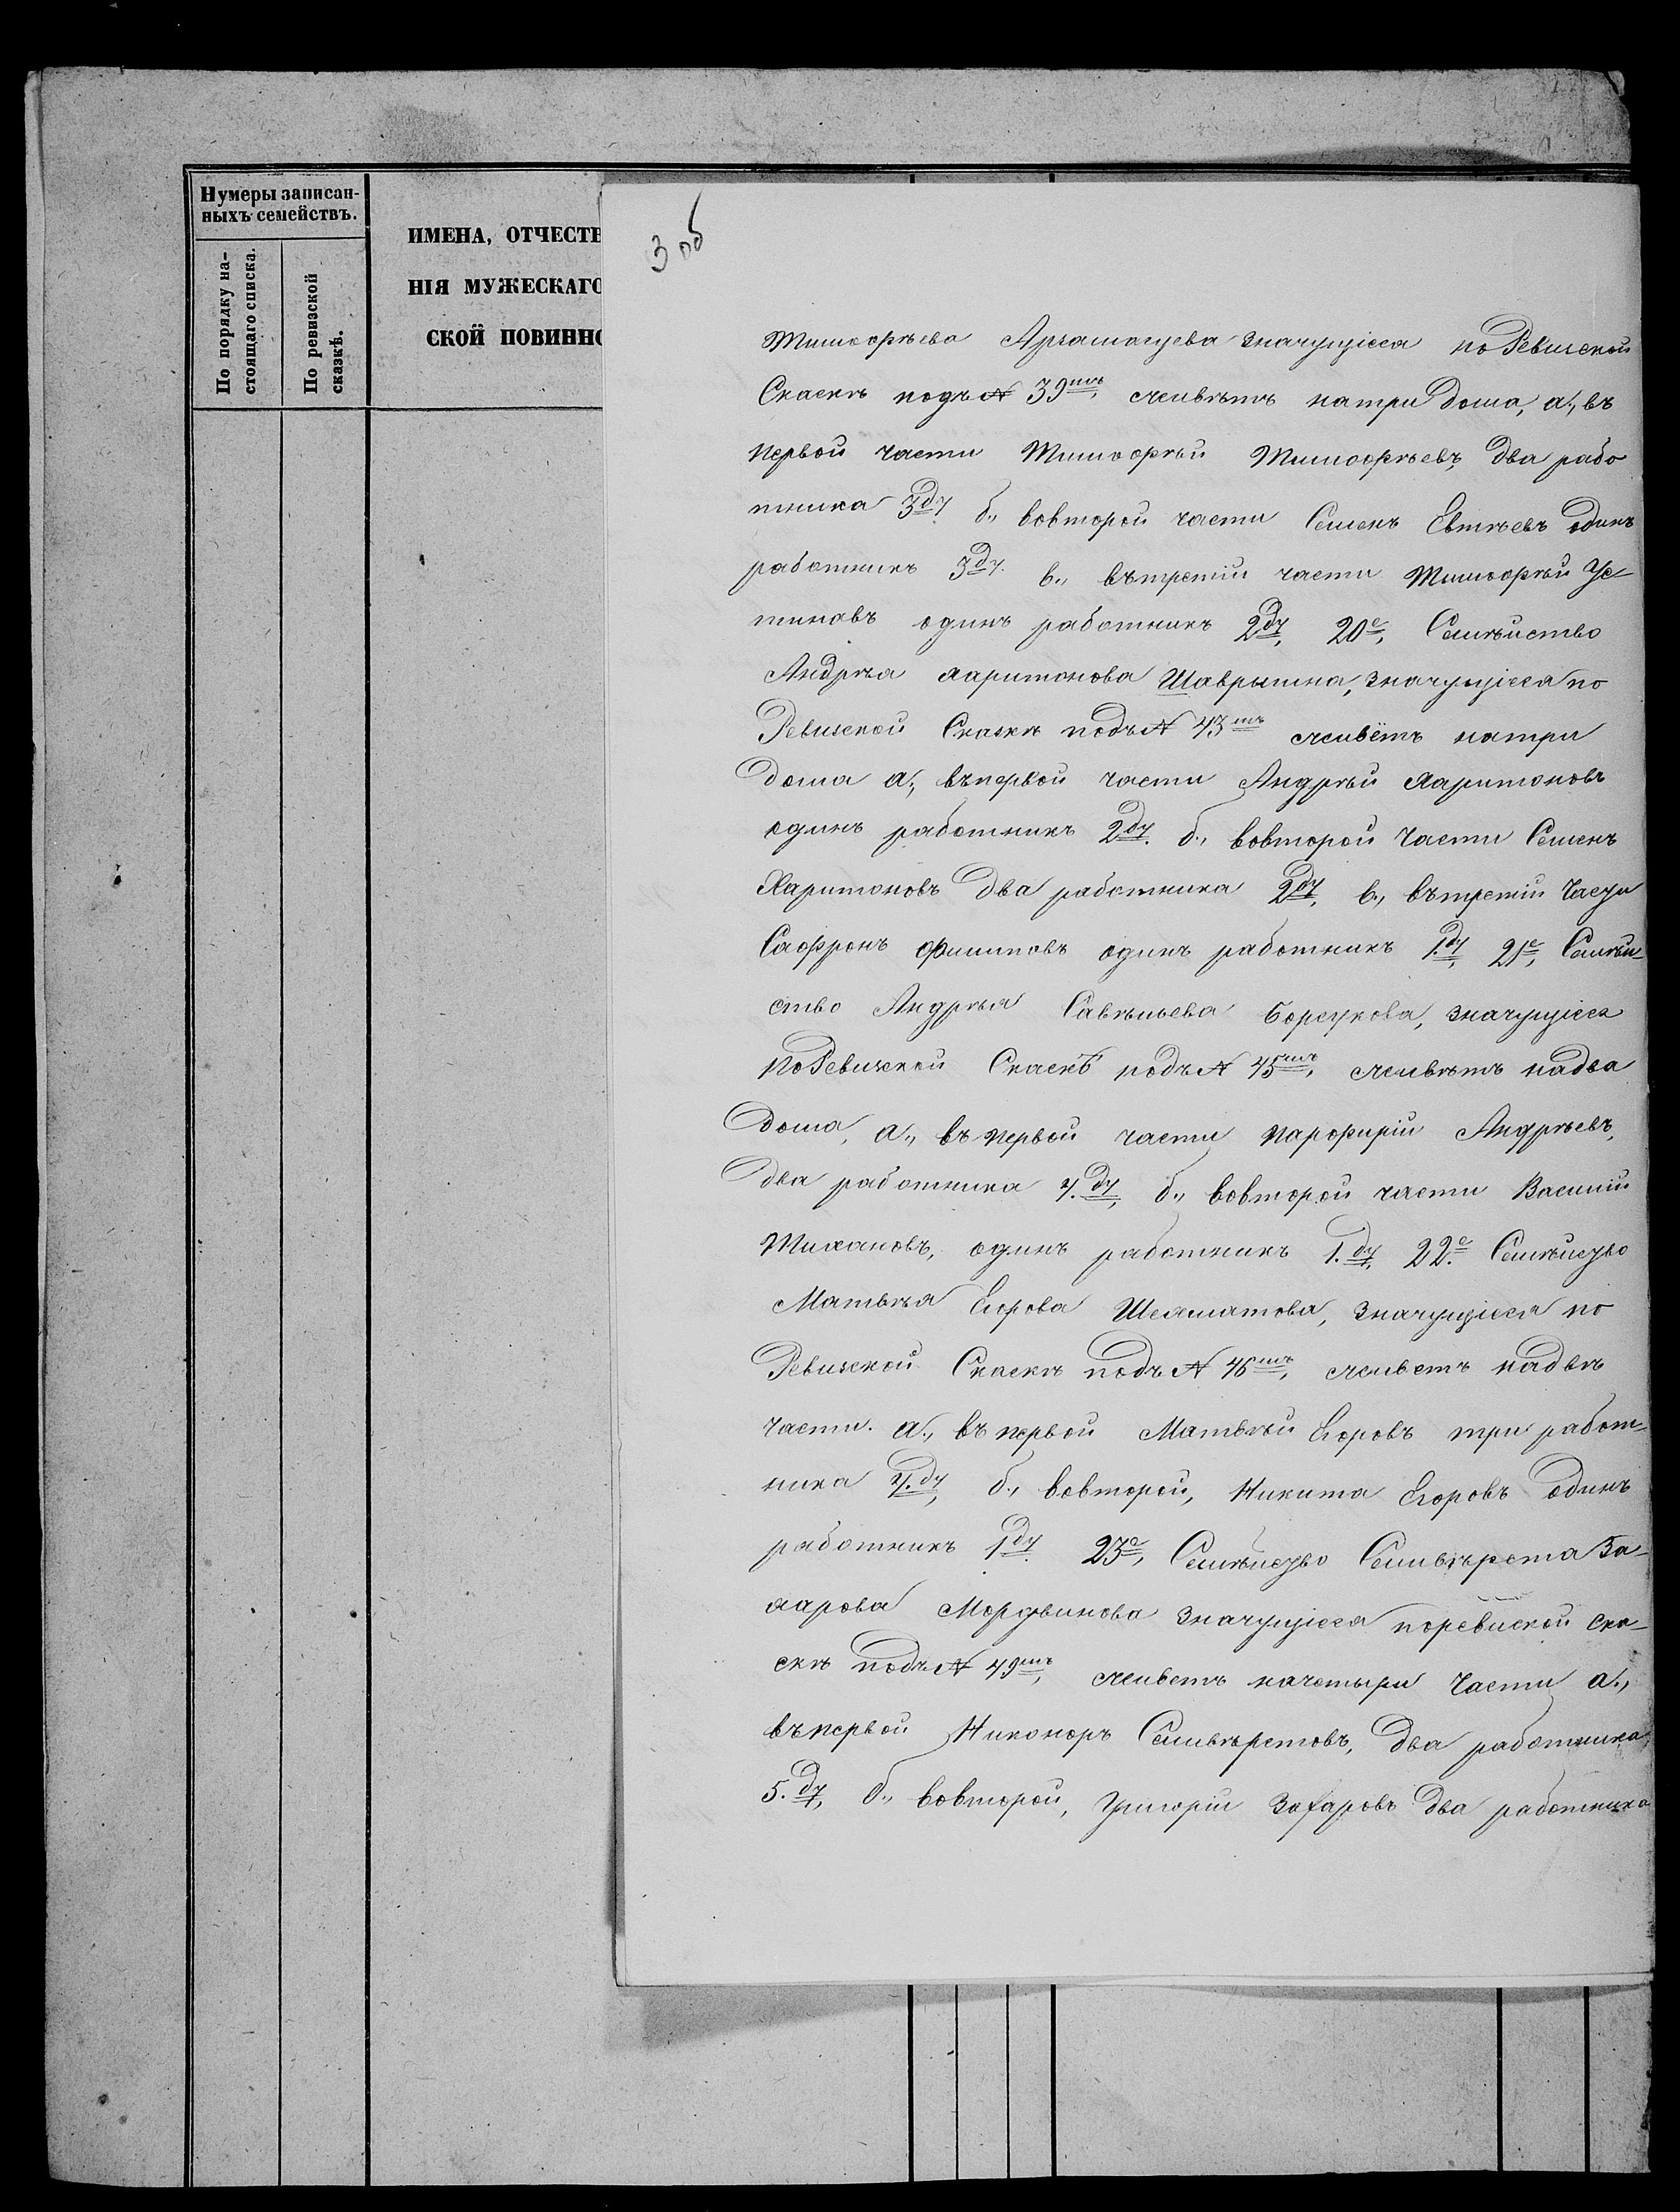 Нумеры записан-
ныхъ семействъ.
По порядку на-
стоящаго списка.
По ревизской
сказкѣ.
ИМЕНА, ОТЧЕСТВ
НІЯ МУЖЕСКАГО
СКОЙ ПОВИННО
3 об
Тимофѣева значущіеся по Ревизской
Скаскѣ подъ № 39мъ, живѣтъ натри дома, а., въ
первой части Тимофѣй Тимофѣевъ, два рабо
тника 3ду б., вовторой части Семенъ Евтѣевъ одинъ
работникъ 3ду. в., вътретій части Тимофѣй Ус-
тинавъ одинъ работникъ 2ду, 20е, Семѣйство
Андрѣя Харитонова Шаврытна, значущіеся по
Ревизской Сказкѣ подъ № 43мъ живётъ натри
дома а., въпервой части Андрѣй Харитоновъ
одинъ работникъ 2ду. б., вовторой части Семенъ
Харитоновъ два работника 2ду, в., вътретій части
Сафронъ Филиповъ одинъ работникъ 1.ду, 21е, Семѣй-
ство Андрѣя Савѣльева Борсукова, значущіеся
по Ревизской Скаскѣ подъ № 45мъ, живѣтъ надва
дома, а., въ первой части Парфирій Андрѣевъ,
два работника 4.ду, б., вовторой части Василій
Тихановъ, одинъ работникъ 1.ду, 22.е Семѣйство
Матвѣя Егорова Шехматова, значущіеся по
Ревизской Скаскѣ подъ № 46мъ, живетъ надвѣ
части. а., въ первой Матвѣй Егоровъ три работ-
ника 4.ду, б., вовторой, Никита Егоровъ одинъ
работникъ 1ду. 23е, Семѣйство Селивѣрста За-
харова Мордвинова значущіеся поревиской ска-
скѣ подъ № 49мъ, живетъ начетыри части а.,
въпервой Никоноръ Селивѣрстовъ, два работника
5.ду, б., вовторой, Григорій Захаровъ два работника